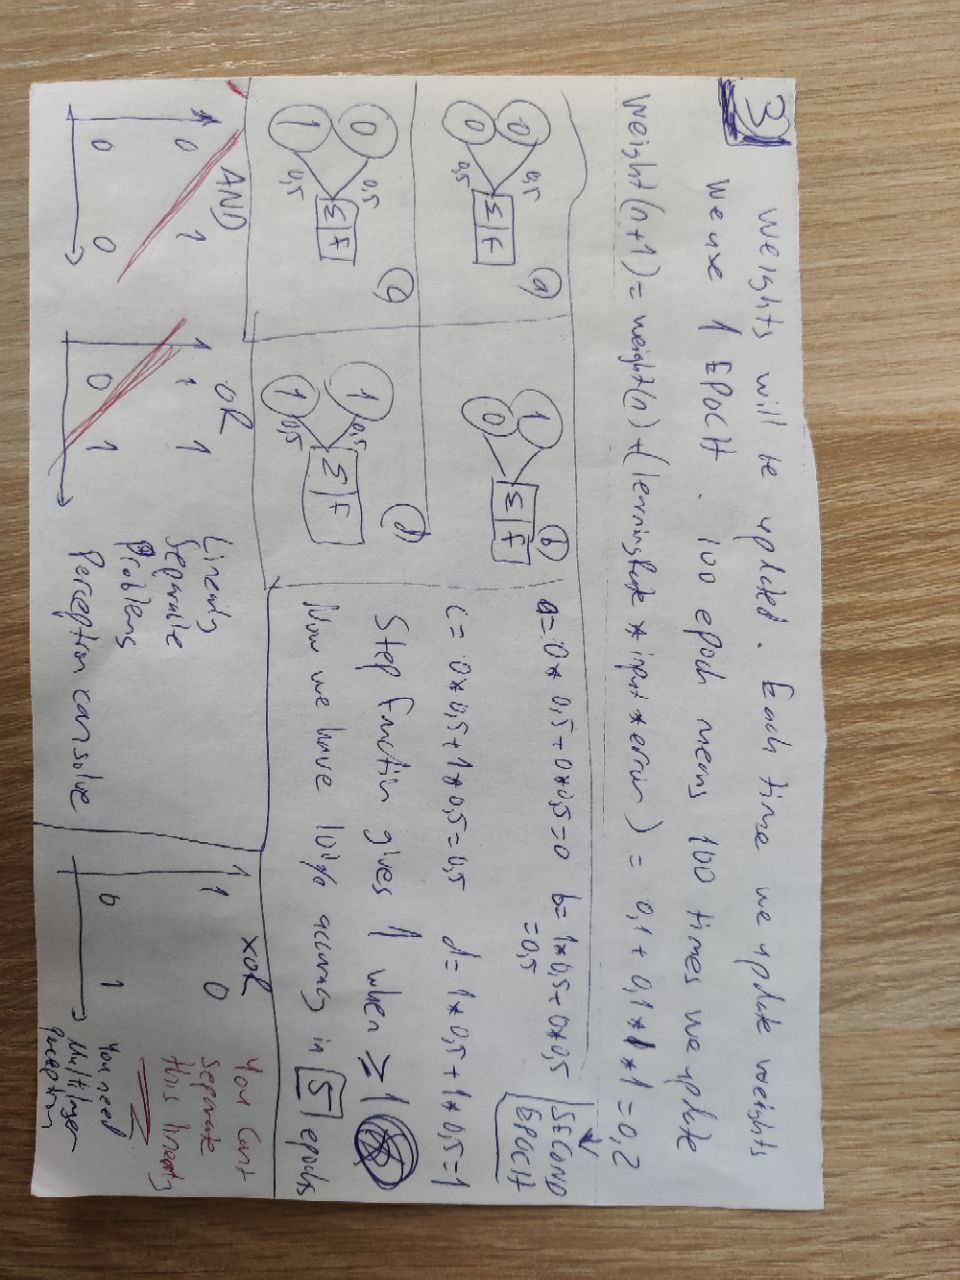 3
Weights will be updated. Each time we update weights
We use 1 EPOCH. 100 epoch means 100 times we update
Weight(n+1)= weight(n)+(learningRate * input * error) = 0,1 + 0,1*1*1=0,2
SECOND
EPOCH
a
0
0
0,5
0,5
Σ f
b
1
0
Σ f
a=0* 0,5+0*0,5=0
b= 1*0,5+0*0,5
=0,5
c
0
1
0,5
0,5
Σ f
d
1
1
0,5
0,5
Σ f
c= 0*0,5+1*0,5=0,5
d= 1*0,5+1*0,5=1
Step Function gives 1 when ≥1
Now we have 100% accuracy in 5 epochs
AND
0 1
0 0
OR
1 1
0 1
Linearly
Separable
Problems
Perceptron can solve
XOR
1
1 0
0 1
You Cant
separate
this linearly
You need
Multilayer
perceptron